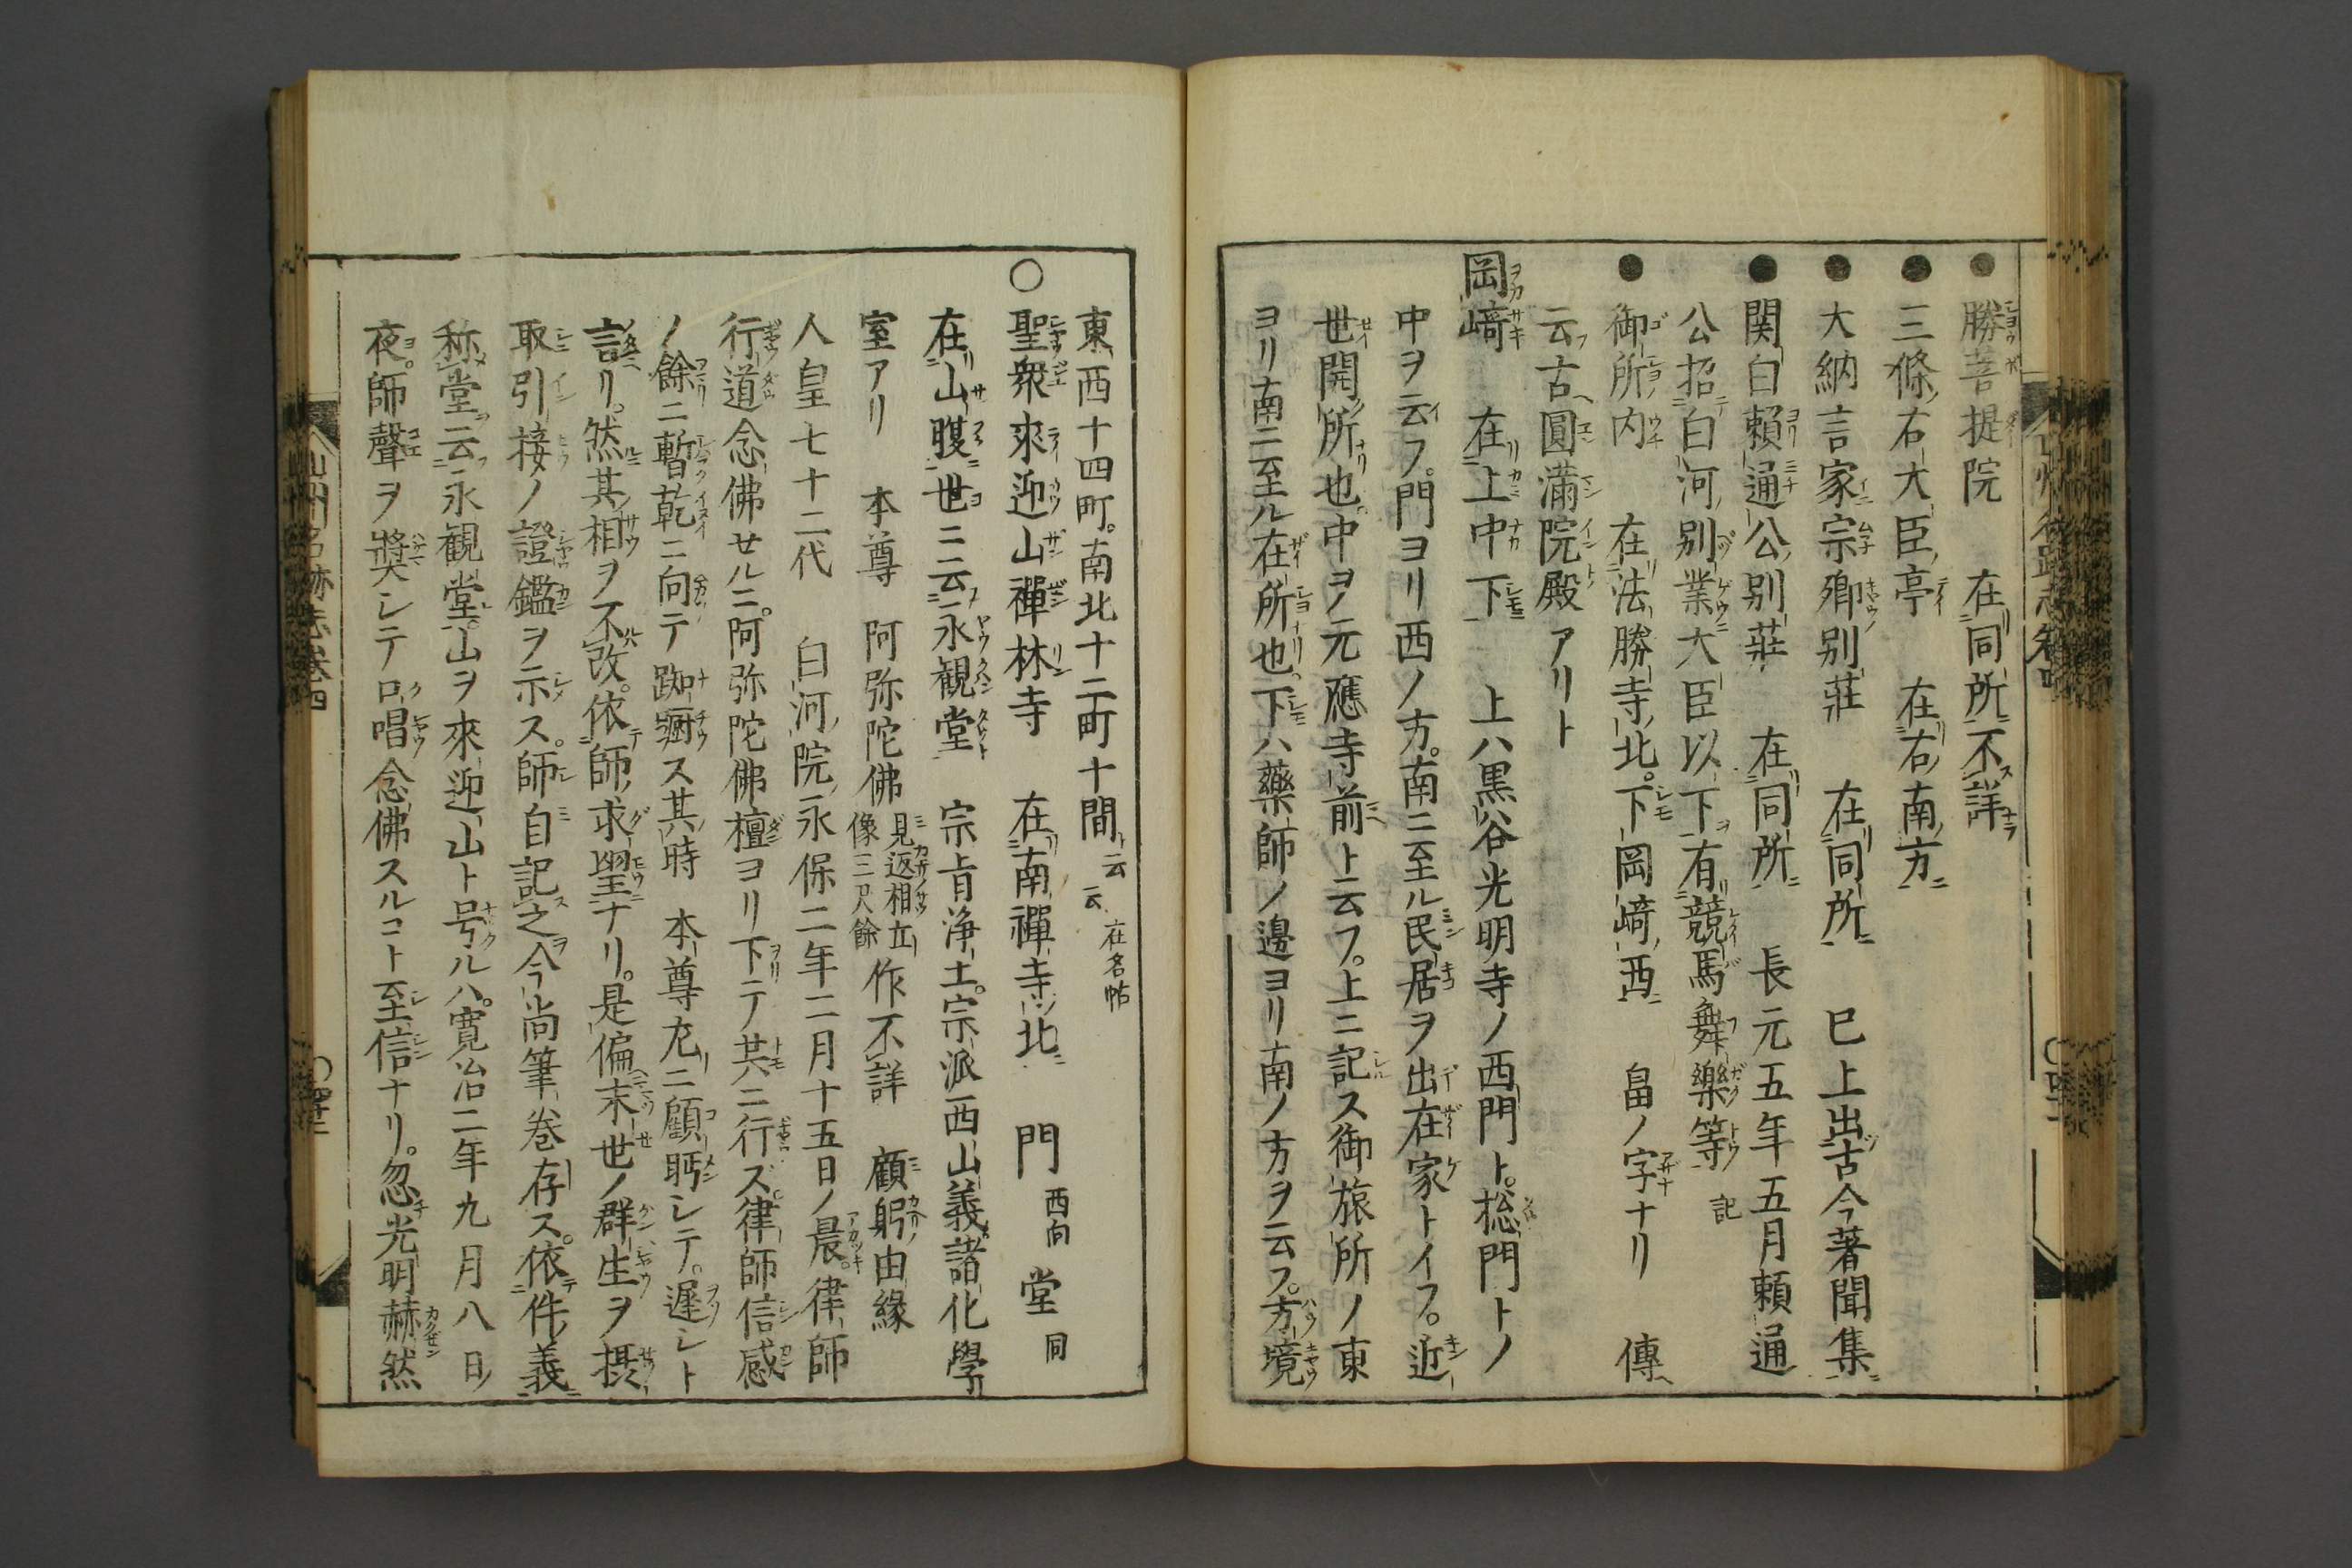 勝菩提院　在同所不詳
三條右大臣亭　在右南方
大納言家宗卿別莊　在同所　巳上出古今著聞集
関白頼通公別莊　在同所　長元五年五月頼通
公招白河別業大臣以下有競馬舞樂等　記
御所内　在法勝寺北。下岡﨑西　畠ノ字ナリ　傳
云古圓満院殿アリト
岡﨑　在上中下　上ハ黒谷光明寺ノ西門ト。捴門トノ
中ヲ云フ。門ヨリ西ノ方。南ニ至ル民居ヲ出在家トイフ。近
世開所也。中ヲノ元應寺前ト云フ。上ニ記ス御旅所ノ東
ヨリ南ニ至ル在所也。下ハ藥師ノ邊ヨリ南ノ方ヲ云フ。方境
東西十四町。南北十二町十間ト云云　在名帖
聖衆來迎山禪林寺　在南禪寺北　門西向　堂同
在山腹世ニ云永観堂　宗旨浄土。宗派西山義諸化學
室アリ　本尊　阿弥陀佛見返相立像三尺餘作不詳　顧躬由縁
人皇七十二代　白河院永保二年二月十五日ノ晨。律師
行道念佛セルニ。阿弥陀佛檀ヨリ下テ共ニ行ズ。律師信感
ノ餘ニ暫乾ニ向テ踟躕ス其時　本尊左ニ顧眄シテ。遅シト
言リ。然其相ヲ不改。依師求望ナリ。是偏末世ノ群生ヲ摂
取引接ノ證鑑ヲ示ス。師自記之今尚筆卷存ス。依件義
称堂云永観堂。山ヲ來迎山ト号ルハ。寛治二年九月八日
夜。師聲ヲ奬シテ口唱念佛スルコト至信ナリ。忽光明赫然
山州名跡志卷四